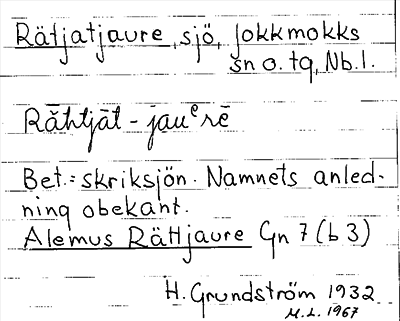 Rätjatjaure, sjö, Jokkmokks
sn o. tg, Nb. l.
Răhtjāt - jauᵉrē
Bet. = skriksjön. Namnets anled-
ning obekant.
Alemus Rättjaure Gn 7 (b 3)
H. Grundström 1932
M.L. 1967